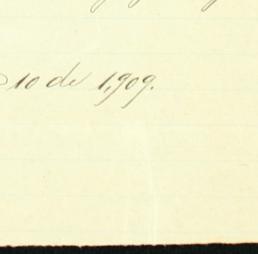 10 de 1,909.